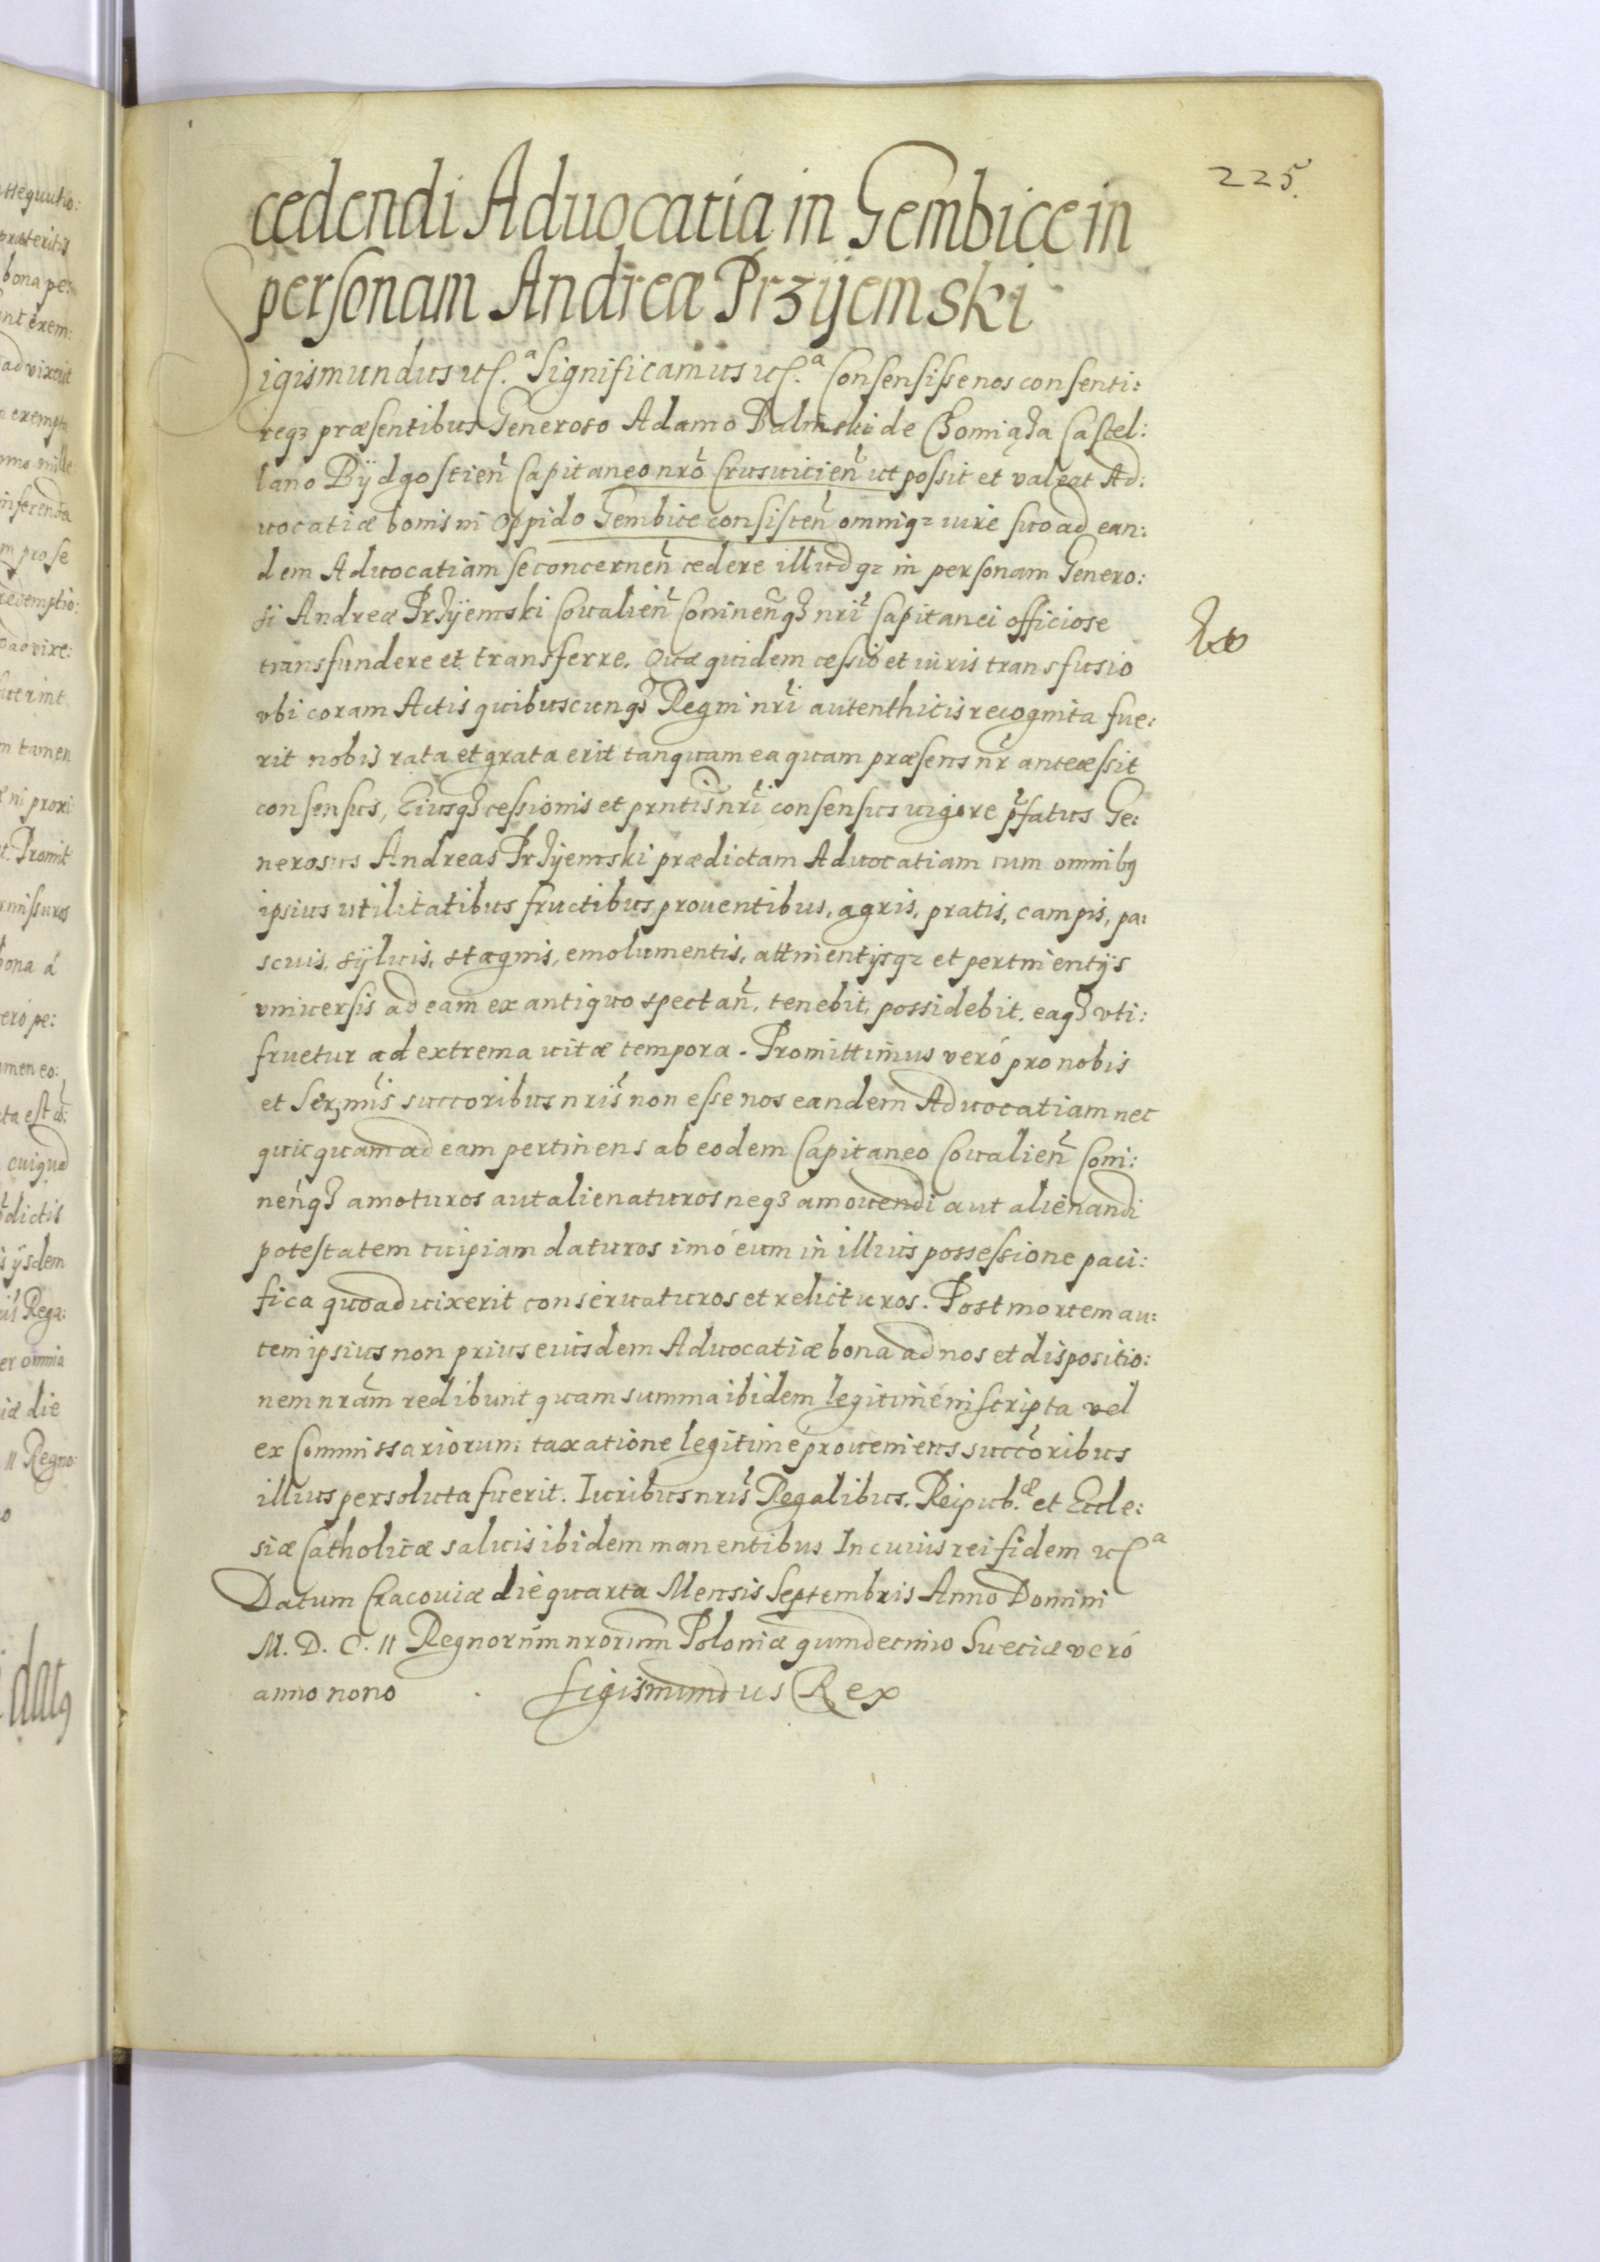 225.
cedendi Aduocatia in Gembice in
personam Andreæ Przÿemski
Sigismundus etc.ª Significamus etc.ª Consensisse nos consenti:
reqȝ præsentibus Generoso Adamo Balinski de Chomiąża Castel:
lano Bÿdgostien̄ Capitaneo nr̄o Crusuicien̄ ut possit et valeat Ad:
uocatiæ bonis in Oppido Gembice consisten̄ omniqȝ iure suo ad ean:
dem Aduocatiam se concernen̄ cedere illudqȝ in personam Genero:
si Andreæ Przÿemski Coualien̄ Coninen̄qȝ nr̄i Capitanei officiose
transfundere et transferre. Quæ quidem cessio et iuris transfusio
vbi coram Actis quibuscunqȝ Regni nr̄i autenthicis recognita fue:
rit nobis rata et grata erit tanquam ea quam præsens nr̄ antecessit
consensus, Eiusqȝ cessionis et prn̄tis nr̄i consensus uigore p̄fatus Ge:
nerosus Andreas Przÿemski prædictam Aduocatiam cum omnibꝯ
ipsius utilitatibus fructibus prouentibus, agris, pratis, campis, pa:
scuis, sÿluis, stagnis, emolumentis, attinentÿsqȝ et pertinentÿs
vniuersis ad eam ex antiquo spectan̄, tenebit, possidebit, eaqȝ vti:
fruetur ad extrema uitæ tempora. Promittimus veró pro nobis
et Serm̄is succoribus nr̄is non esse nos eandem Aduocatiam nec
quicquam ad eam pertinens ab eodem Capitaneo Coualien̄ Coni:
nen̄qȝ amoturos aut alienaturos neqȝ amouendi aut alienandi
potestatem cuipiam daturos imó eum in illius possessione paci:
fica quoad uixerit conseruaturos et relicturos. Post mortem au:
tem ipsius non prius eiusdem Aduocatiæ bona ad nos et dispositio:
nem nr̄am redibunt quam summa ibidem legitimé inscripta vel
ex Commissariorum taxatione legitime proueniens succōribus
illius persoluta fuerit. Iuribus nr̄is Regalibus, Reipub.æ et Eccle:
siæ Catholicæ saluis ibidem manentibus In cuius rei fidem etc.ª
Datum Cracouiæ die quarta Mensis Septembris Anno Domini
M. D. C. II Regnorum nr̄orum Poloniæ quindecimo Sueciæ veró
anno nono . Sigismundus Rex